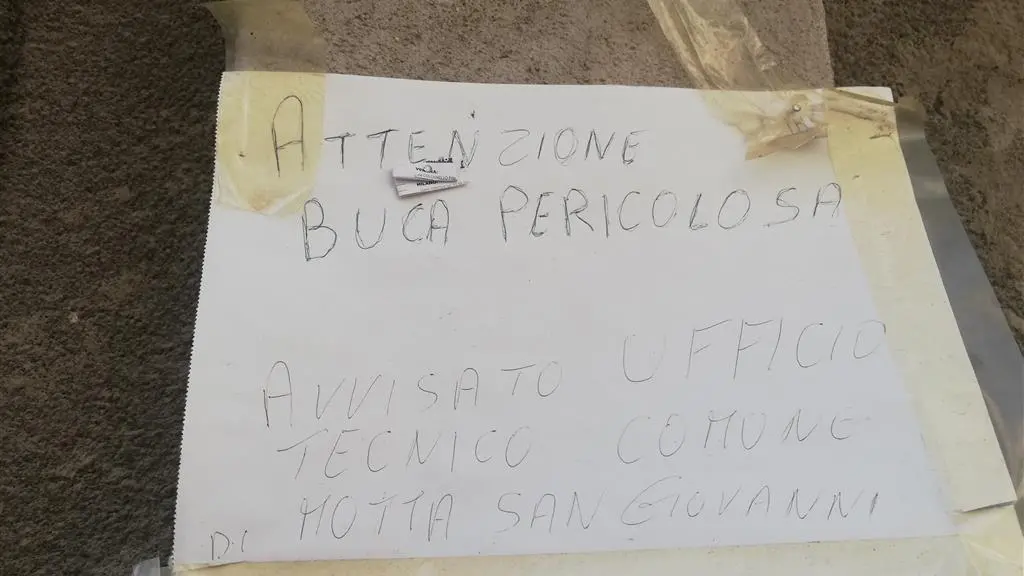 ATTENZIONE
BUCA PERICOLOSA
AVVISATO UFFICIO
TECNICO COMUNE
DI MOTTA SAN GIOVANNI